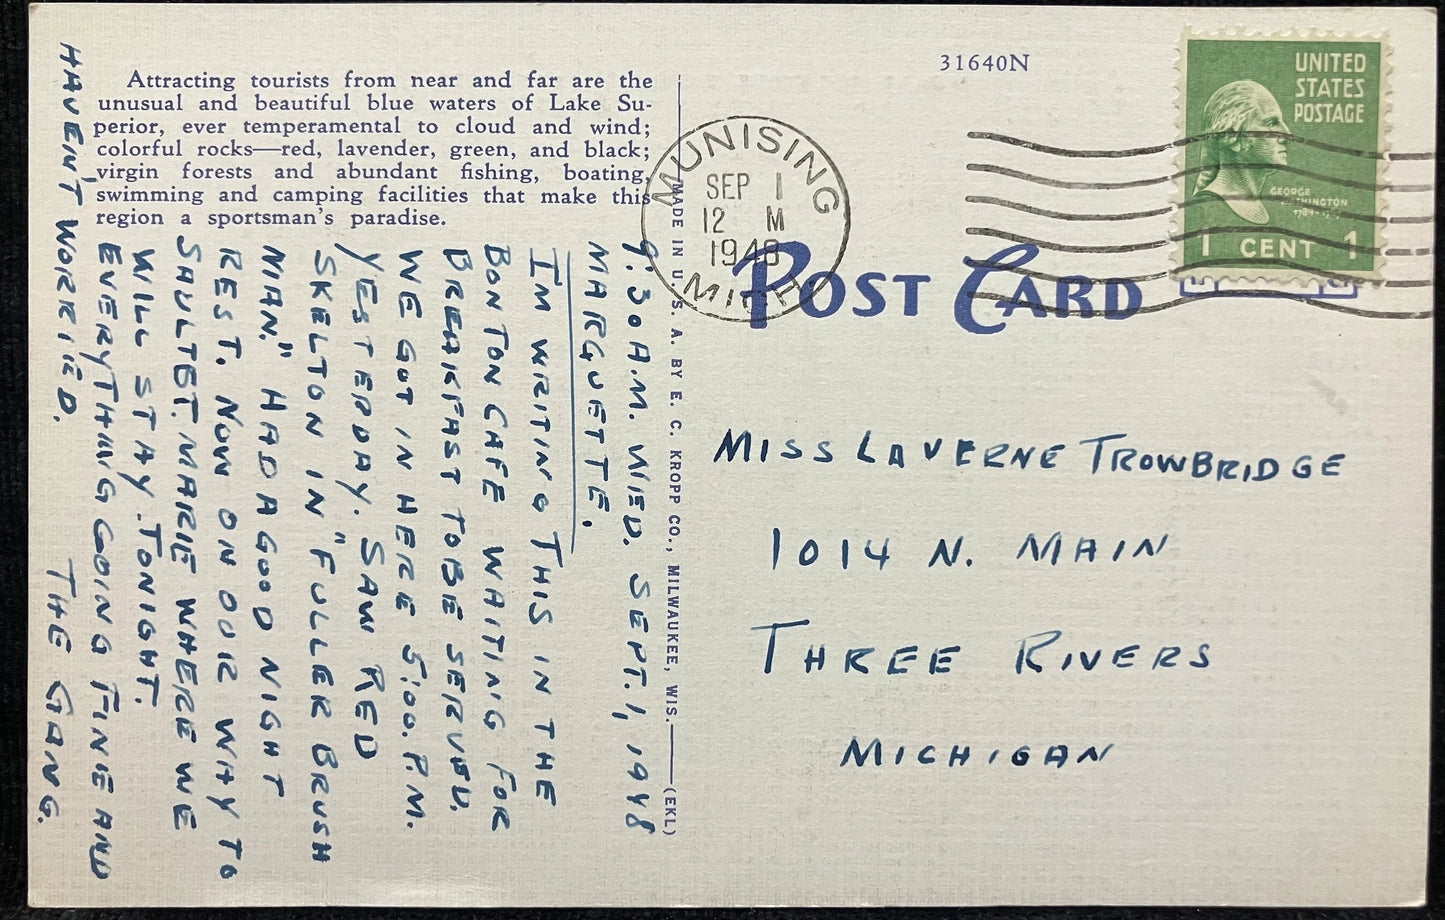 Attracting tourists from near and far are the
unusual and beautiful blue waters of Lake Su-
perior, ever temperamental to cloud and wind;
colorful rocks—red, lavender, green, and black;
virgin forests and abundant fishing, boating,
swimming and camping facilities that make this
region a sportsman's paradise.
9:30 A.M. WED. SEPT. 1, 1948
MARQUETTE.
I'M WRITING THIS IN THE
BON TON CAFE WAITING FOR
BREAKFAST TO BE SERVED.
WE GOT IN HERE 5:00. P.M.
YESTERDAY. SAW RED
SKELTON IN "FULLER BRUSH
MAN." HAD A GOOD NIGHT
REST. NOW ON OUR WAY TO
SAULTET. MARIE WHERE WE
WILL STAY TONIGHT.
EVERYTHING GOING FINE AND
HAVEIN'T WORRIED.
THE GANG.
MADE IN U. S. A. BY E. C. KROPP CO., MILWAUKEE, WIS.——(EKL)
31640N
MUNISING
SEP 1
12 M
1948
MICH
UNITED
STATES
POSTAGE
GEORGE
WASHINGTON
1 CENT 1
POST CARD
MISS LAVERNE TROWBRIDGE
1014 N. MAIN
THREE RIVERS
MICHIGAN